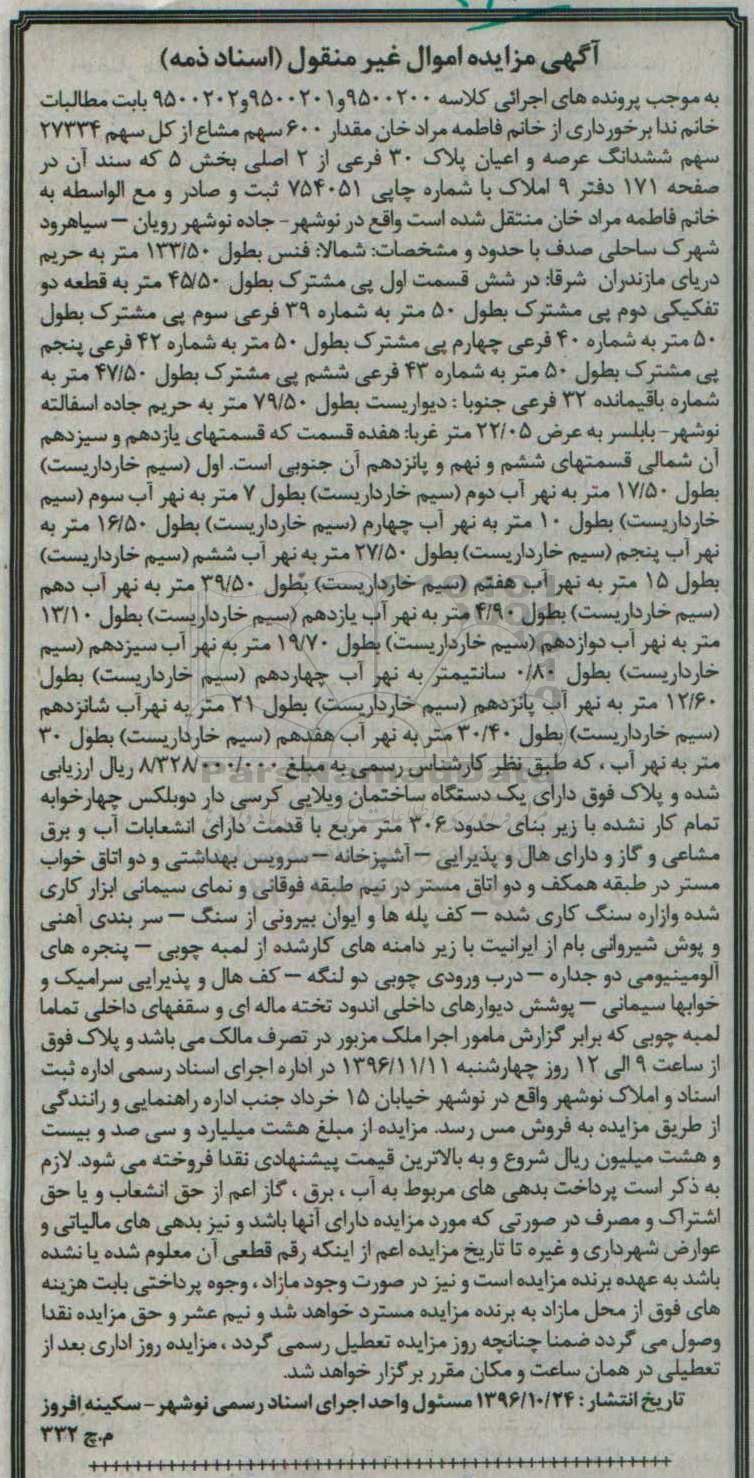 آگهی مزایده اموال غیر منقول (اسناد ذمه)
به موجب پرونده های اجرائی کلاسه ۹۵۰۰۲۰۰و۹۵۰۰۲۰۱و۹۵۰۰۲۰۲ بابت مطالبات
خانم ندا برخورداری از خانم فاطمه مراد خان مقدار ۶۰۰ سهم مشاع از کل سهم ۲۷۳۳۴
سهم ششدانگ عرصه و اعیان پلاک ۳۰ فرعی از ۲ اصلی بخش ۵ که سند آن در
صفحه ۱۷۱ دفتر ۹ املاک با شماره چاپی ۷۵۴۰۵۱ ثبت و صادر و مع الواسطه به
خانم فاطمه مراد خان منتقل شده است واقع در نوشهر- جاده نوشهر رویان – سیاهرود
شهرک ساحلی صدف با حدود و مشخصات: شمالا: فنس بطول ۱۳۳/۵۰ متر به حریم
دریای مازندران شرقا: در شش قسمت اول پی مشترک بطول ۴۵/۵۰ متر به قطعه دو
تفکیکی دوم پی مشترک بطول ۵۰ متر به شماره ۳۹ فرعی سوم پی مشترک بطول
۵۰ متر به شماره ۴۰ فرعی چهارم پی مشترک بطول ۵۰ متر به شماره ۴۲ فرعی پنجم
پی مشترک بطول ۵۰ متر به شماره ۴۳ فرعی ششم پی مشترک بطول ۴۷/۵۰ متر به
شماره باقیمانده ۳۲ فرعی جنوبا : دیواریست بطول ۷۹/۵۰ متر به حریم جاده اسفالته
نوشهر- بابلسر به عرض ۲۲/۰۵ متر غربا: هفده قسمت که قسمتهای یازدهم و سیزدهم
آن شمالی قسمتهای ششم و نهم و پانزدهم آن جنوبی است. اول (سیم خارداریست)
بطول ۱۷/۵۰ متر به نهر آب دوم (سیم خارداریست) بطول ۷ متر به نهر آب سوم (سیم
خارداریست) بطول ۱۰ متر به نهر آب چهارم (سیم خارداریست) بطول ۱۶/۵۰ متر به
نهر آب پنجم (سیم خارداریست) بطول ۲۷/۵۰ متر به نهر آب ششم (سیم خارداریست)
بطول ۱۵ متر به نهر آب هفتم (سیم خارداریست) بطول ۳۹/۵۰ متر به نهر آب دهم
(سیم خارداریست) بطول ۴/۹۰ متر به نهر آب یازدهم (سیم خارداریست) بطول ۱۳/۱۰
متر به نهر آب دوازدهم (سیم خارداریست) بطول ۱۹/۷۰ متر به نهر آب سیزدهم (سیم
خارداریست) بطول ۰/۸۰ سانتیمتر به نهر آب چهاردهم (سیم خارداریست) بطول
۱۲/۶۰ متر به نهر آب پانزدهم (سیم خارداریست) بطول ۲۱ متر به نهرآب شانزدهم
(سیم خارداریست) بطول ۳۰/۴۰ متر به نهر آب هفدهم (سیم خارداریست) بطول ۳۰
متر به نهر آب ، که طبق نظر کارشناس رسمی به مبلغ ۸/۳۲۸/۰۰۰/۰۰۰ ریال ارزیابی
شده و پلاک فوق دارای یک دستگاه ساختمان ویلایی کرسی دار دوبلکس چهارخوابه
تمام کار نشده با زیر بنای حدود ۳۰۶ متر مربع با قدمت دارای انشعابات آب و برق
مشاعی و گاز و دارای هال و پذیرایی – آشپزخانه – سرویس بهداشتی و دو اتاق خواب
مستر در طبقه همکف و دو اتاق مستر در نیم طبقه فوقانی و نمای سیمانی ابزار کاری
شده وازاره سنگ کاری شده – کف پله ها و ایوان بیرونی از سنگ – سر بندی آهنی
و پوش شیروانی بام از ایرانیت با زیر دامنه های کارشده از لمبه چوبی – پنجره های
آلومینیومی دو جداره – درب ورودی چوبی دو لنگه – کف هال و پذیرایی سرامیک و
خوابها سیمانی – پوشش دیوارهای داخلی اندود تخته ماله ای و سقفهای داخلی تماما
لمبه چوبی که برابر گزارش مامور اجرا ملک مزبور در تصرف مالک می باشد و پلاک فوق
از ساعت ۹ الی ۱۲ روز چهارشنبه ۱۳۹۶/۱۱/۱۱ در اداره اجرای اسناد رسمی اداره ثبت
اسناد و املاک نوشهر واقع در نوشهر خیابان ۱۵ خرداد جنب اداره راهنمایی و رانندگی
از طریق مزایده به فروش مس رسد. مزایده از مبلغ هشت میلیارد و سی صد و بیست
و هشت میلیون ریال شروع و به بالاترین قیمت پیشنهادی نقدا فروخته می شود. لازم
به ذکر است پرداخت بدهی های مربوط به آب ، برق ، گاز اعم از حق انشعاب و یا حق
اشتراک و مصرف در صورتی که مورد مزایده دارای آنها باشد و نیز بدهی های مالیاتی و
عوارض شهرداری و غیره تا تاریخ مزایده اعم از اینکه رقم قطعی آن معلوم شده یا نشده
باشد به عهده برنده مزایده است و نیز در صورت وجود مازاد ، وجوه پرداختی بابت هزینه
های فوق از محل مازاد به برنده مزایده مسترد خواهد شد و نیم عشر و حق مزایده نقدا
وصول می گردد ضمنا چنانچه روز مزایده تعطیل رسمی گردد ، مزایده روز اداری بعد از
تعطیلی در همان ساعت و مکان مقرر برگزار خواهد شد.
تاریخ انتشار : ۱۳۹۶/۱۰/۲۴ مسئول واحد اجرای اسناد رسمی نوشهر – سکینه افروز
م.چ ۳۳۲